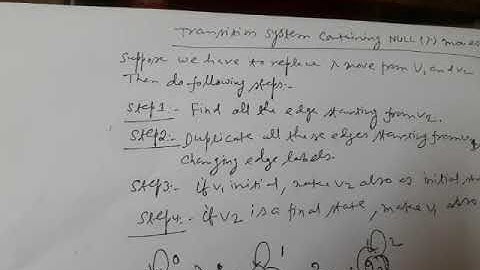 Transition System Containing NULL (λ) moves
Suppose we have to replace λ move from V1 and V2
Then do following steps:-
Step1:- Find all the edge starting from V2.
Step2:- Duplicate all these edges starting from V1,
Changing edge labels.
Step3:- if V1 initial, make V2 also as initial
Step4:- if V2 is a final state, make V1 also
0 1 2